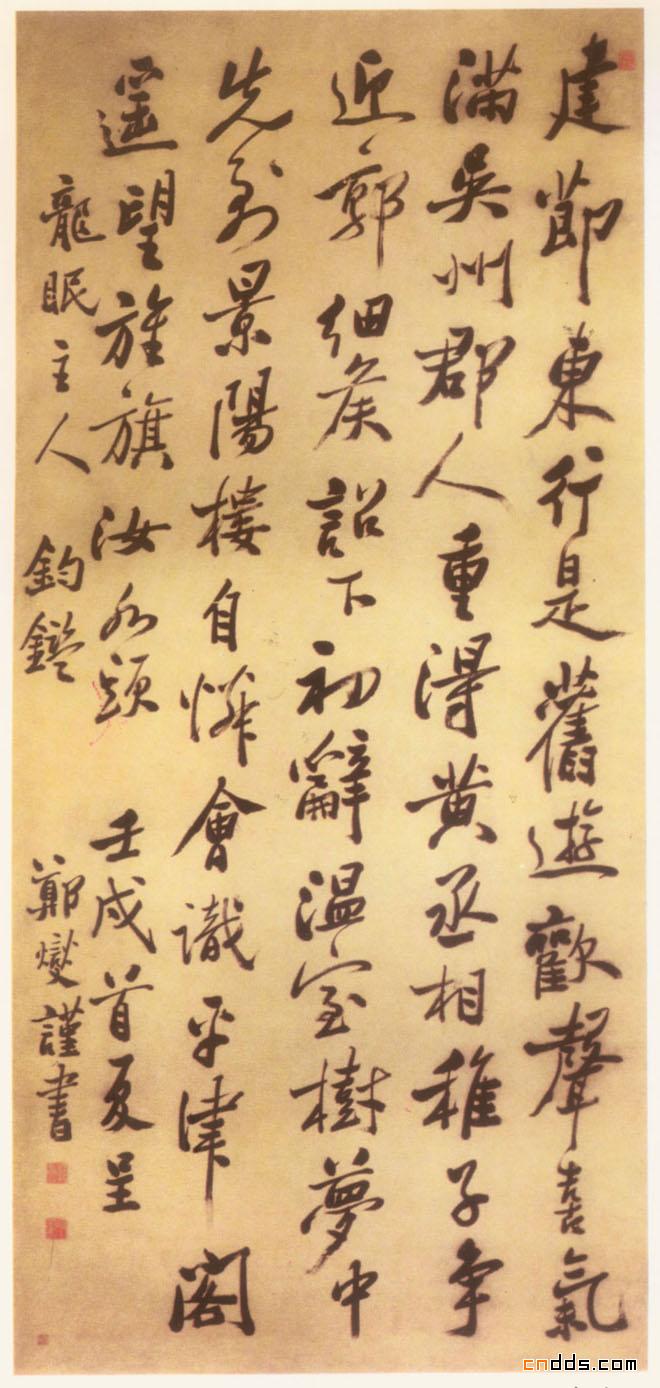 建節東行是舊遊歡聲喜氣
滿吳州郡人重得黃丞相稚子爭
近郭細侯詔下初辭溫室樹夢中
先到景陽樓自憐會識平津閣
遥望旌旗汝水頭 壬戌首夏呈
龍眠主人 鈞鑒 鄭燮謹書
cndds.com